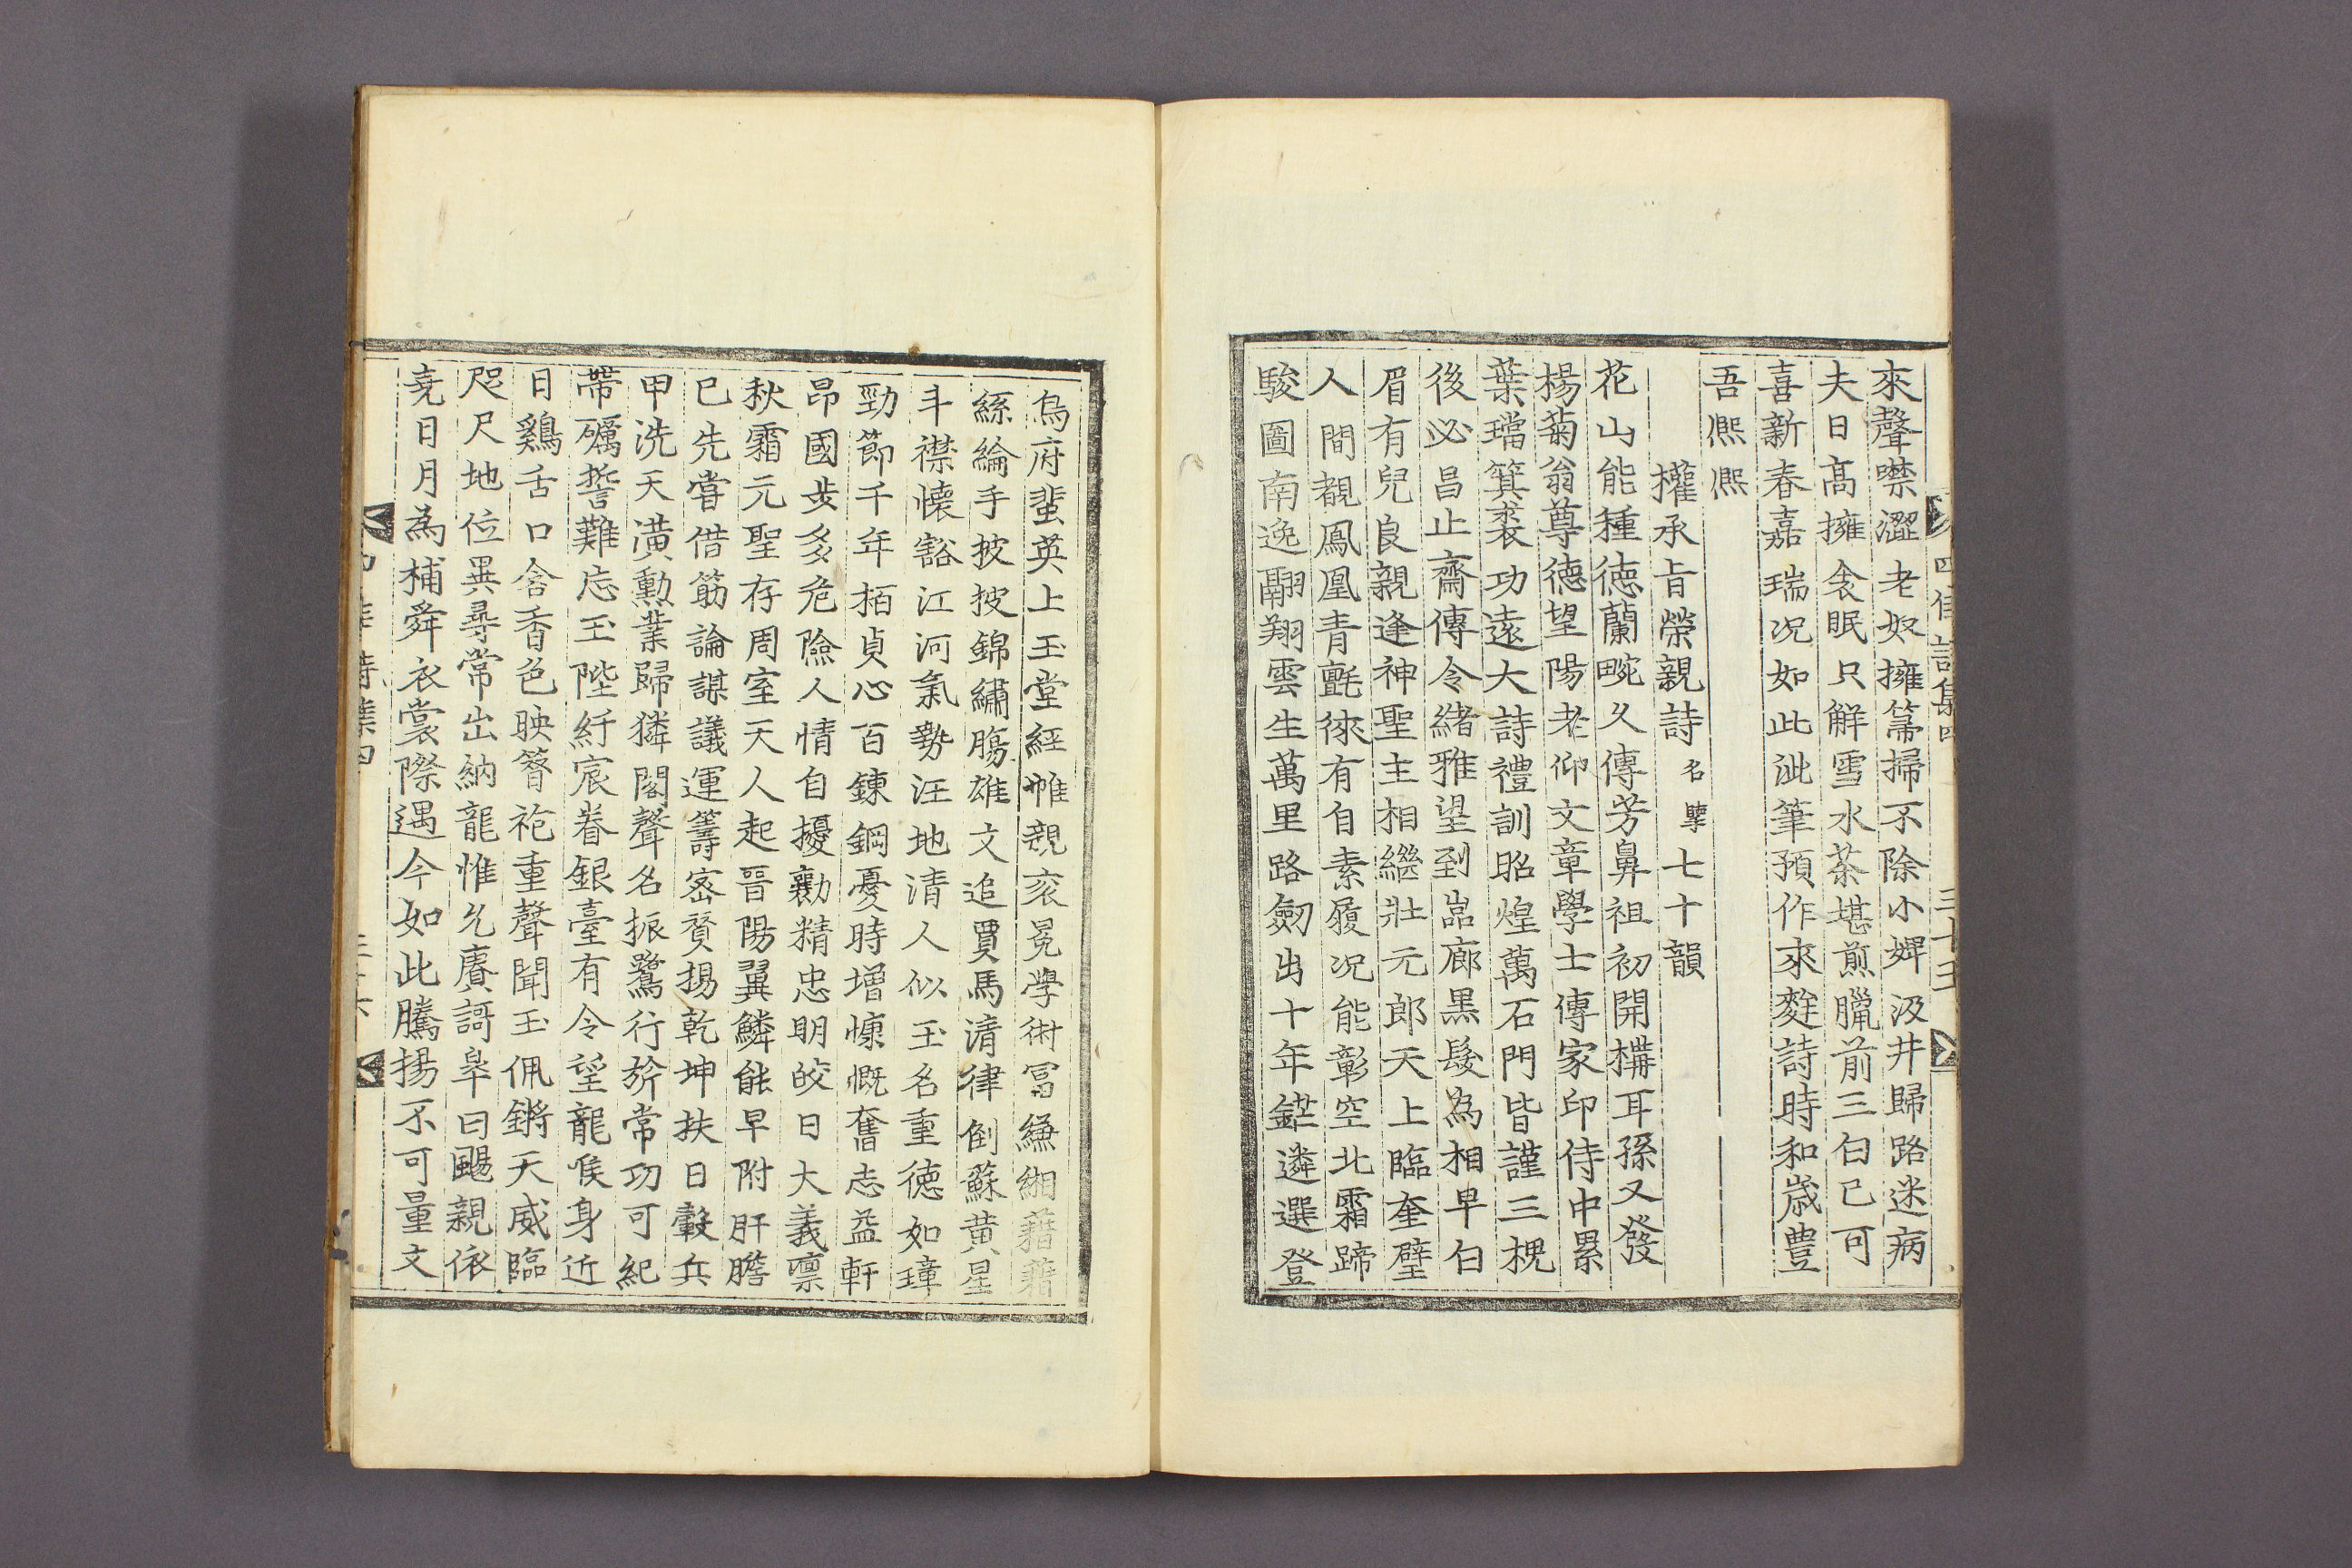 來聲噤澀老奴擁箒掃不除小婢汲井歸路迷病
夫日高擁衾眠只解雪水茶堪煎臘前三白已可
喜新春嘉瑞况如此泚筆預作來麰詩時和歲豊
吾熈熈
權承旨榮親詩名擥七十韻
花山能種德蘭畹久傳芳鼻祖初開構耳孫又發
楊菊翁尊德望陽老仰文章學士傳家印侍中累
葉璫箕裘功遠大詩禮訓昭煌萬石門皆謹三槐
後必昌止齋傳令緖雅望到嵓廊黒髮為相早白
眉有兒良親逢神聖主相繼壯元郎天上臨奎璧
人間覩鳳凰青氈徠有自素履况能彰空北霜蹄
駿圖南逸翮翔雲生萬里路劒出十年鋩遴選登
四佳詩集四 三十五
烏府蜚英上玉堂經帷親衮冕學術冨縑緗藉藉
絲綸手披披錦繡膓雄文追賈馬清律倒蘇黄星
斗襟懐豁江河氣勢汪地清人似玉名重德如璋
勁節千年栢貞心百鍊鋼憂時增慷慨奮志益軒
昂國步多危險人情自擾勷精忠明皎日大義凛
秋霜元聖存周室天人起晉陽翼鱗能早附肝膽
已先嘗借筯論謀議運籌宻賛揚乾坤扶日轂兵
甲洗天潢勳業歸獜閣聲名振鷺行旂常功可紀
帶礪誓難忘玉陛紆宸眷銀臺有令望龍喉身近
日鷄舌口含香色映簪袍重聲聞玉佩鏘天威臨
咫尺地位異尋常出納龍惟允賡謌皐曰颺親依
堯日月為補舜衣裳際遇今如此騰揚不可量文